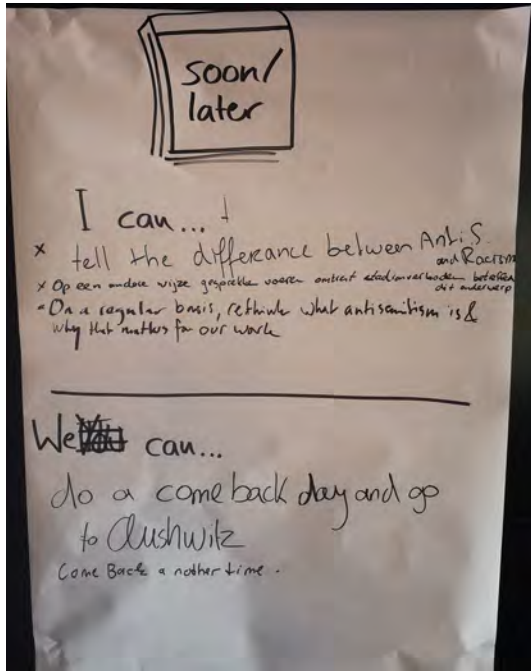 soon/
later
I can...
x tell the differeance between AntiS
and Racism
x Op een andere wijze gesprekken voeren omtrent stadionverboden betreffen
dit onderwerp
- On a regular basis, rethink what antisemitism is &
why that matters for our work
We can...
do a come back day and go
to Aushwitz
Come Back a nother time.